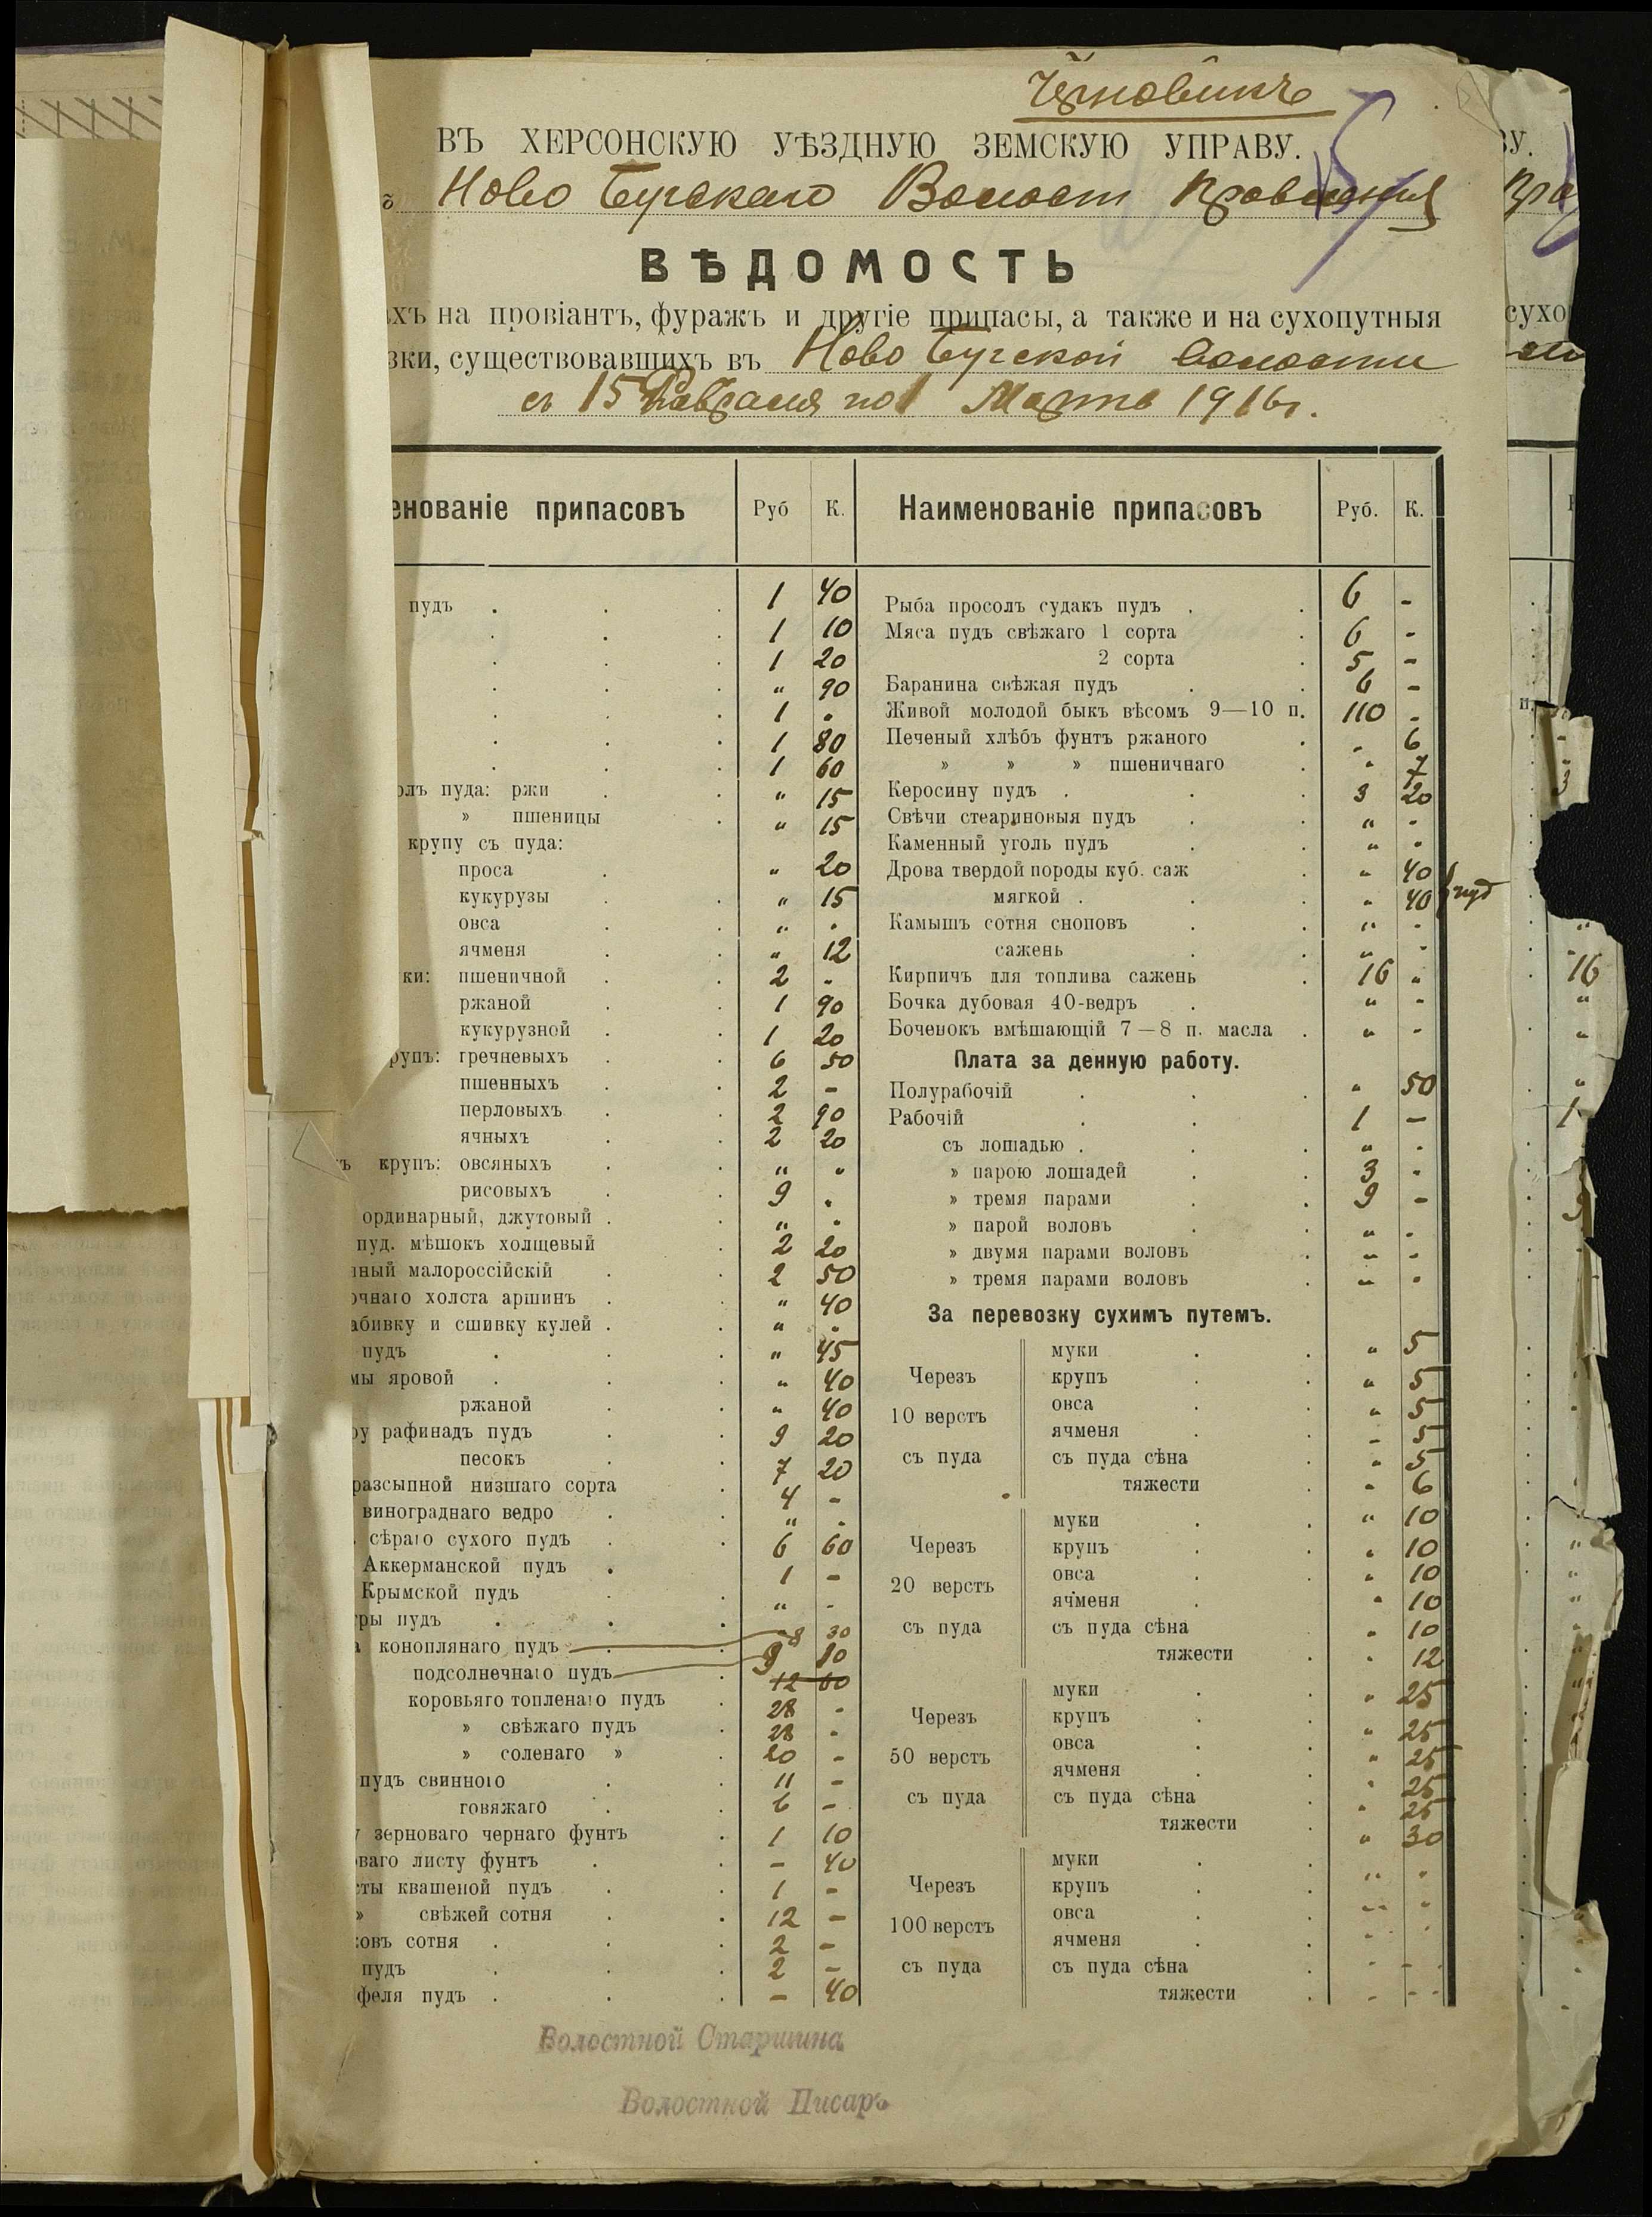 Черновикъ
ВЪ ХЕРСОНСКУЮ УѢЗДНУЮ ЗЕМСКУЮ УПРАВУ.
Ново Бугскаго Волост Правления
ВѢДОМОСТЬ
хъ на провіантъ, фуражъ и другіе припасы, а также и на сухопутныя
зки, существовавшихъ въ Ново Бугской Волости
съ 15 Февраля по 1 Марта 1916 г.
енованіе припасовъ Руб К. Наименованіе припасовъ Руб. К.
пудъ . . . 1 40
. . . 1 10
. . . 1 20
. . . „ 90
. . . 1 -
. . . 1 80
. . . 1 60
олъ пуда: ржи . . „ 15
» пшеницы . „ 15
крупу съ пуда:
проса . „ 20
кукурузы . . „ 15
овса . . „ -
ячменя . . „ 12
ки: пшеничной . . 2 -
ржаной . . 1 90
кукурузной . . 1 20
рупъ: гречневыхъ . . 6 50
пшенныхъ . . 2 -
перловыхъ . . 2 90
ячныхъ . . 2 20
ъ крупъ: овсяныхъ . . „ -
рисовыхъ . . 9 -
ординарный, джутовый . . „ -
пуд. мѣшокъ холщевый . 2 20
нный малороссійскій . . 2 50
очнаго холста аршинъ . . „ 40
абивку и сшивку кулей . . „ -
пудъ . . . „ 45
мы яровой . . . „ 40
ржаной . . „ 40
ру рафинадъ пудъ . . 9 20
песокъ . . 7 20
разсыпной низшаго сорта . 4 -
винограднаго ведро . . „ -
сѣраго сухого пудъ . . 6 60
Аккерманской пудъ . . 1 -
Крымской пудъ . . „ -
ры пудъ . . .
а коноплянаго пудъ . . 8 30
подсолнечнаго пудъ . 9 80
12 60
коровьяго топленаго пудъ . 28 -
» свѣжаго пудъ . 28 -
» соленаго » . 20 -
пудъ свинного . . 11 -
говяжаго . . 6 -
зерноваго чернаго фунтъ . 1 10
ваго листу фунтъ . . - 40
сты квашеной пудъ . . 1 -
» свѣжей сотня . . 12 -
ковъ сотня . . . 2 -
пудъ . . . 2 -
феля пудъ . . . - 40
Рыба просолъ судакъ пудъ . . 6 -
Мяса пудъ свѣжаго 1 сорта . 6 -
2 сорта . 5 -
Баранина свѣжая пудъ . . 6 -
Живой молодой быкъ вѣсомъ 9—10 п. 110 -
Печеный хлѣбъ фунтъ ржаного . - 6
» » » пшеничнаго . - 7
Керосину пудъ . . . 3 20
Свѣчи стеариновыя пудъ . . „ -
Каменный уголь пудъ . . „ -
Дрова твердой породы куб. саж . „ 40
мягкой . . . - 40 пуд
Камышъ сотня сноповъ . . „ -
сажень . . „ -
Кирпичъ для топлива сажень . 16 „
Бочка дубовая 40-ведръ . „ -
Боченокъ вмѣщающій 7—8 п. масла . „ -
Плата за денную работу.
Полурабочій . . . „ 50
Рабочій . . 1 -
съ лошадью . . . „ -
» парою лошадей . 3 -
» тремя парами . . 9 -
» парой воловъ . . „ -
» двумя парами воловъ . „ -
» тремя парами воловъ . „ -
За перевозку сухимъ путемъ.
муки . . „ 5
Черезъ крупъ . . „ 5
10 верстъ овса . . „ 5
ячменя . . - 5
съ пуда съ пуда сѣна . - 5
тяжести . - 6
муки . . „ 10
Черезъ крупъ . . „ 10
20 верстъ овса . . „ 10
ячменя . . „ 10
съ пуда съ пуда сѣна . - 10
тяжести . - 12
муки . . „ 25
Черезъ крупъ . . „ 25
50 верстъ овса . . „ 25
ячменя . . „ 25
съ пуда съ пуда сѣна . - 25
тяжести . „ 30
муки . . „ -
Черезъ крупъ . . „ -
100 верстъ овса . . - -
ячменя . .
съ пуда съ пуда сѣна . - -
тяжести . - -
Волостной Старшина
Волостной Писарь